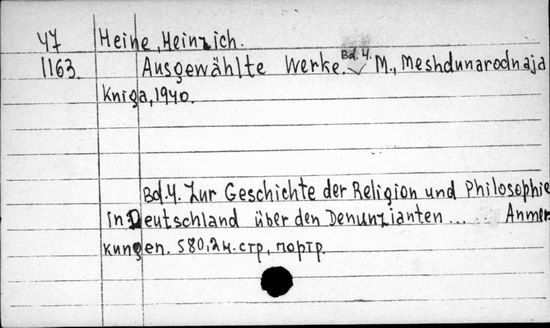 47 Heine, Heinrich.
1163 Ausgewählte Werke. Bd. 4. M., Meshdunarodnaja
Kniga, 1940.
Bd. 4. Zur Geschichte der Religion und Philosophie
in Deutschland über den Denunzianten ... .. Anmer
kungen. 580, 2 н. стр, портр.